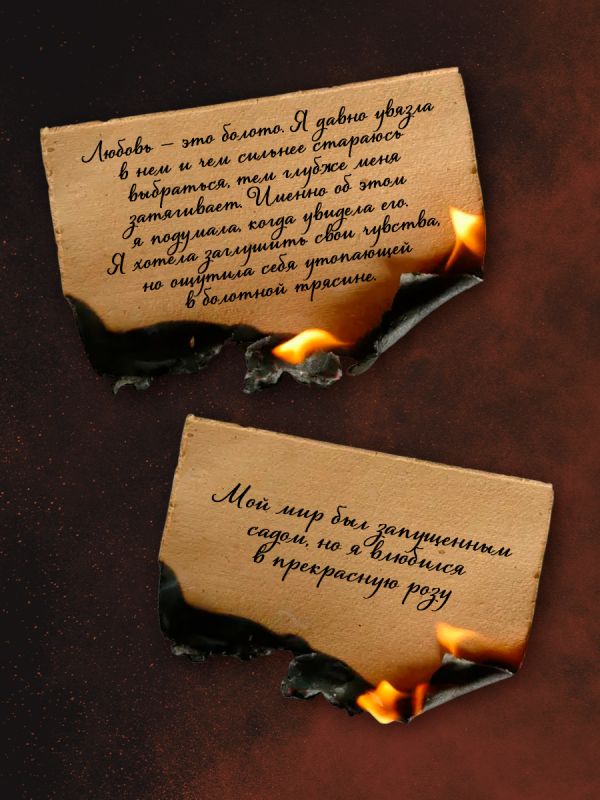 Любовь — это болото. Я давно увязла
в нем и чем сильнее стараюсь
выбраться, тем глубже меня
затягивает. Именно об этом
я подумала, когда увидела его.
Я хотела заглушить свои чувства,
но ощутила себя утопающей
в болотной трясине.
Мой мир был запущенным
садом, но я влюбился
в прекрасную розу